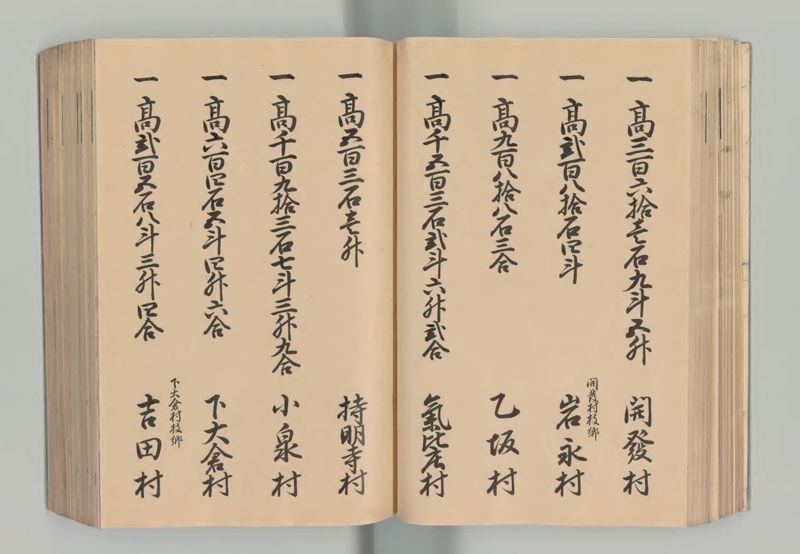 一 高三百六拾壱石九斗五升 開發村
開發村枝郷
一 高弐百八拾石四斗 岩永村
一 高九百八拾八石三合 乙坂村
一 高千五百三石弐斗六升弐合 氣比庄村
一 高五百三石壱升 持明寺村
一 高千百九拾三石七斗三升九合 小泉村
一 高六百四石五斗四升六合 下大倉村
下大倉村枝郷
一 高弐百五石八斗三升四合 吉田村